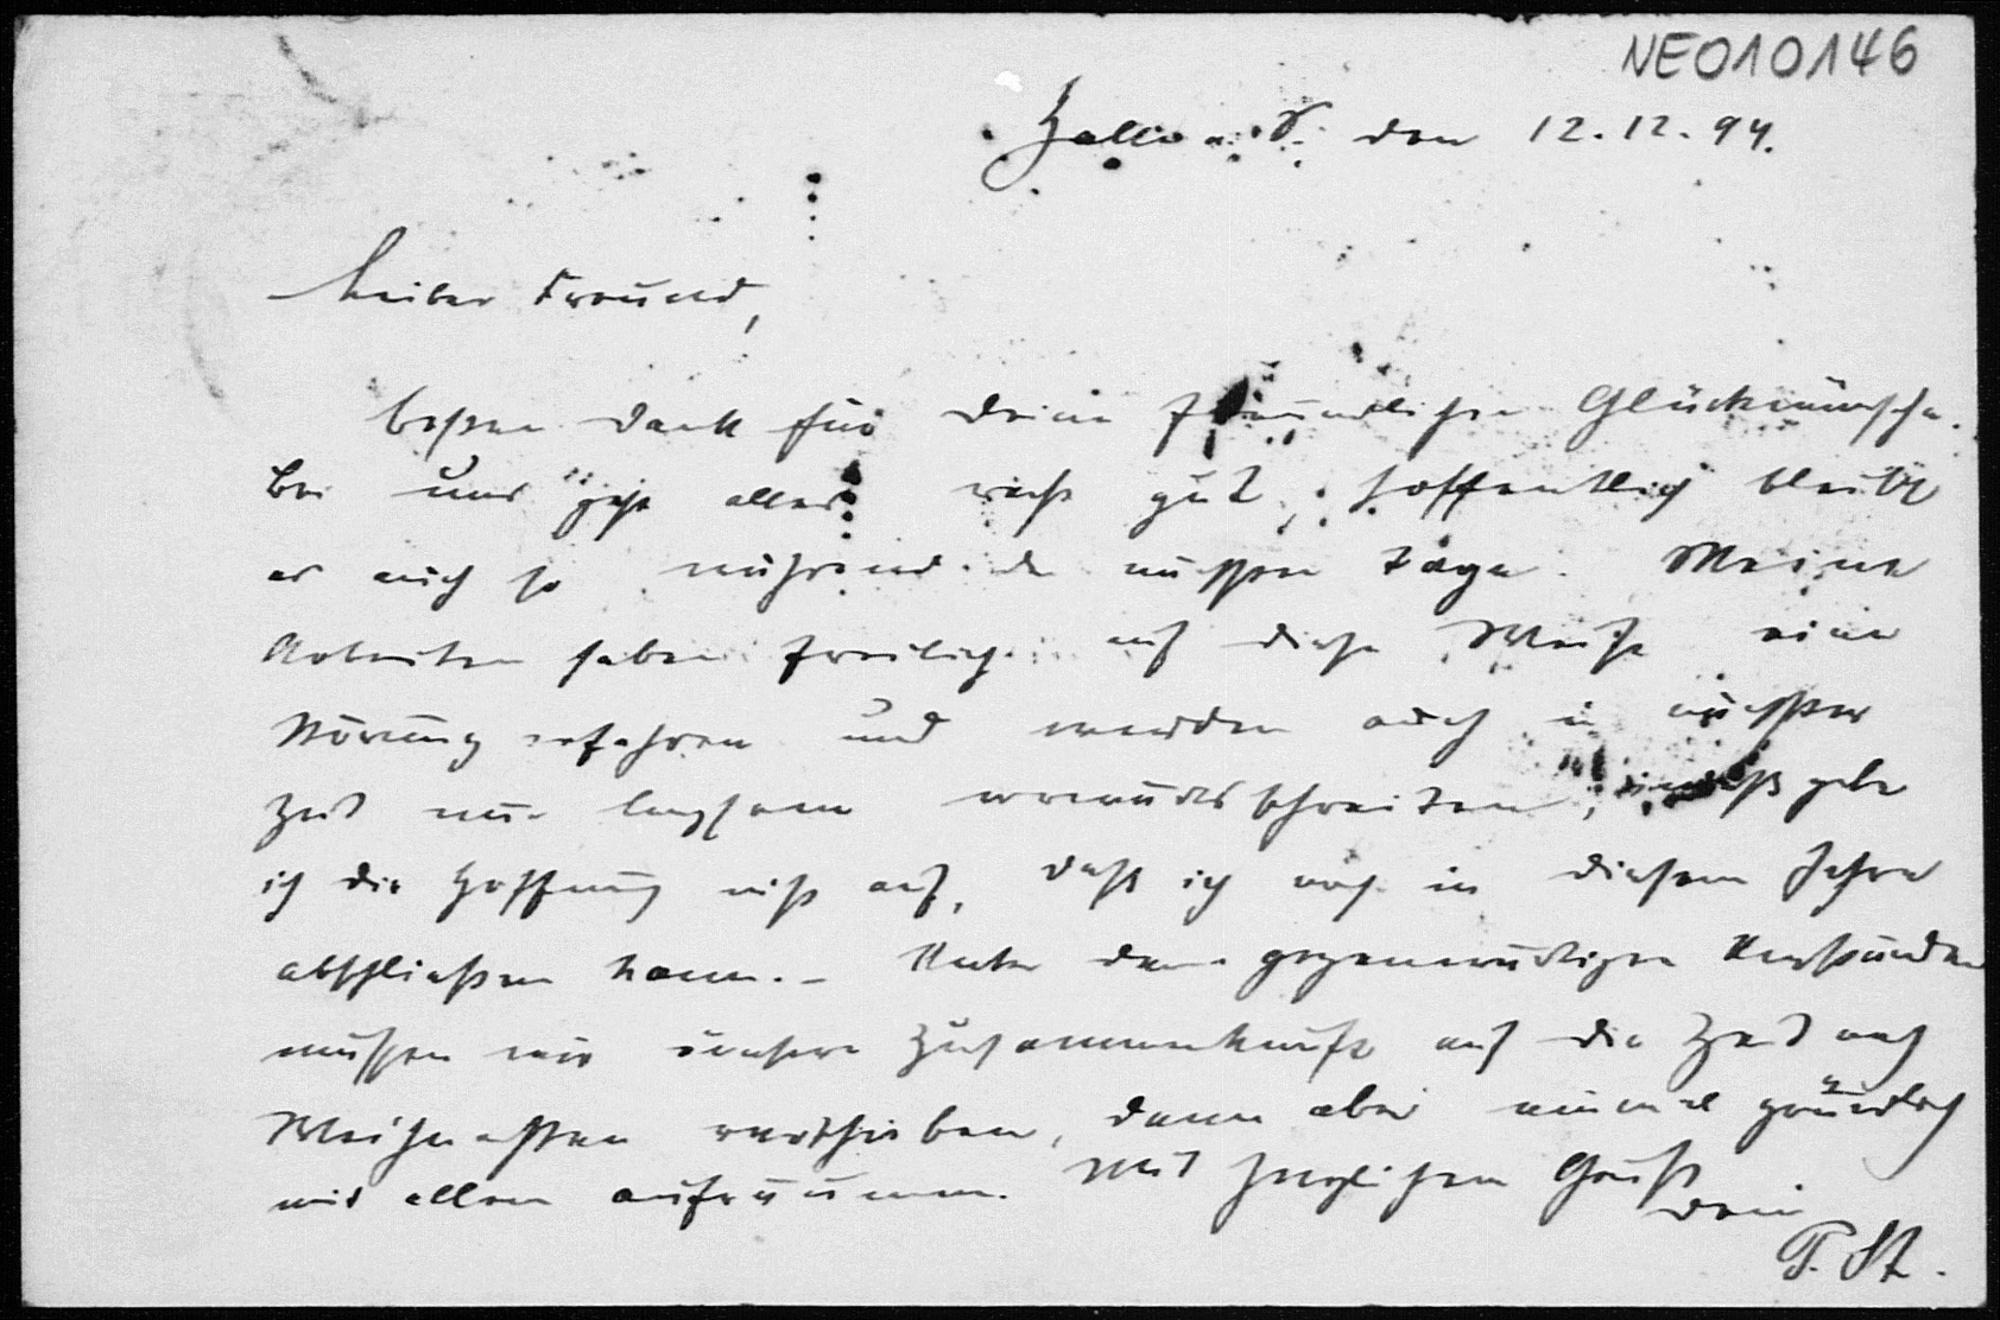 NE010146
Halle a. S. den 12.12.94.
Lieber Freund,
besten Dank für Deine freundlichen Glückwünsche.
Bei uns geht alles recht gut, hoffentlich bleibt
es auch so während der nächsten Tage. Meine
Arbeiten haben freilich auf diese Weise eine
Störung erfahren und werden auch in nächster
Zeit nur langsam vorwärts schreiten, indeß gebe
ich die Hoffnung nicht auf, daß ich noch in diesem Jahre
abschließen kann. – Unter den gegenwärtigen Umständen
müssen wir unsere Zusammenkunft auf die Zeit nach
Weihnachten verschieben, dann aber einmal gründlich
mit allem aufräumen. Mit herzlichem Gruß
Dein
P. St.